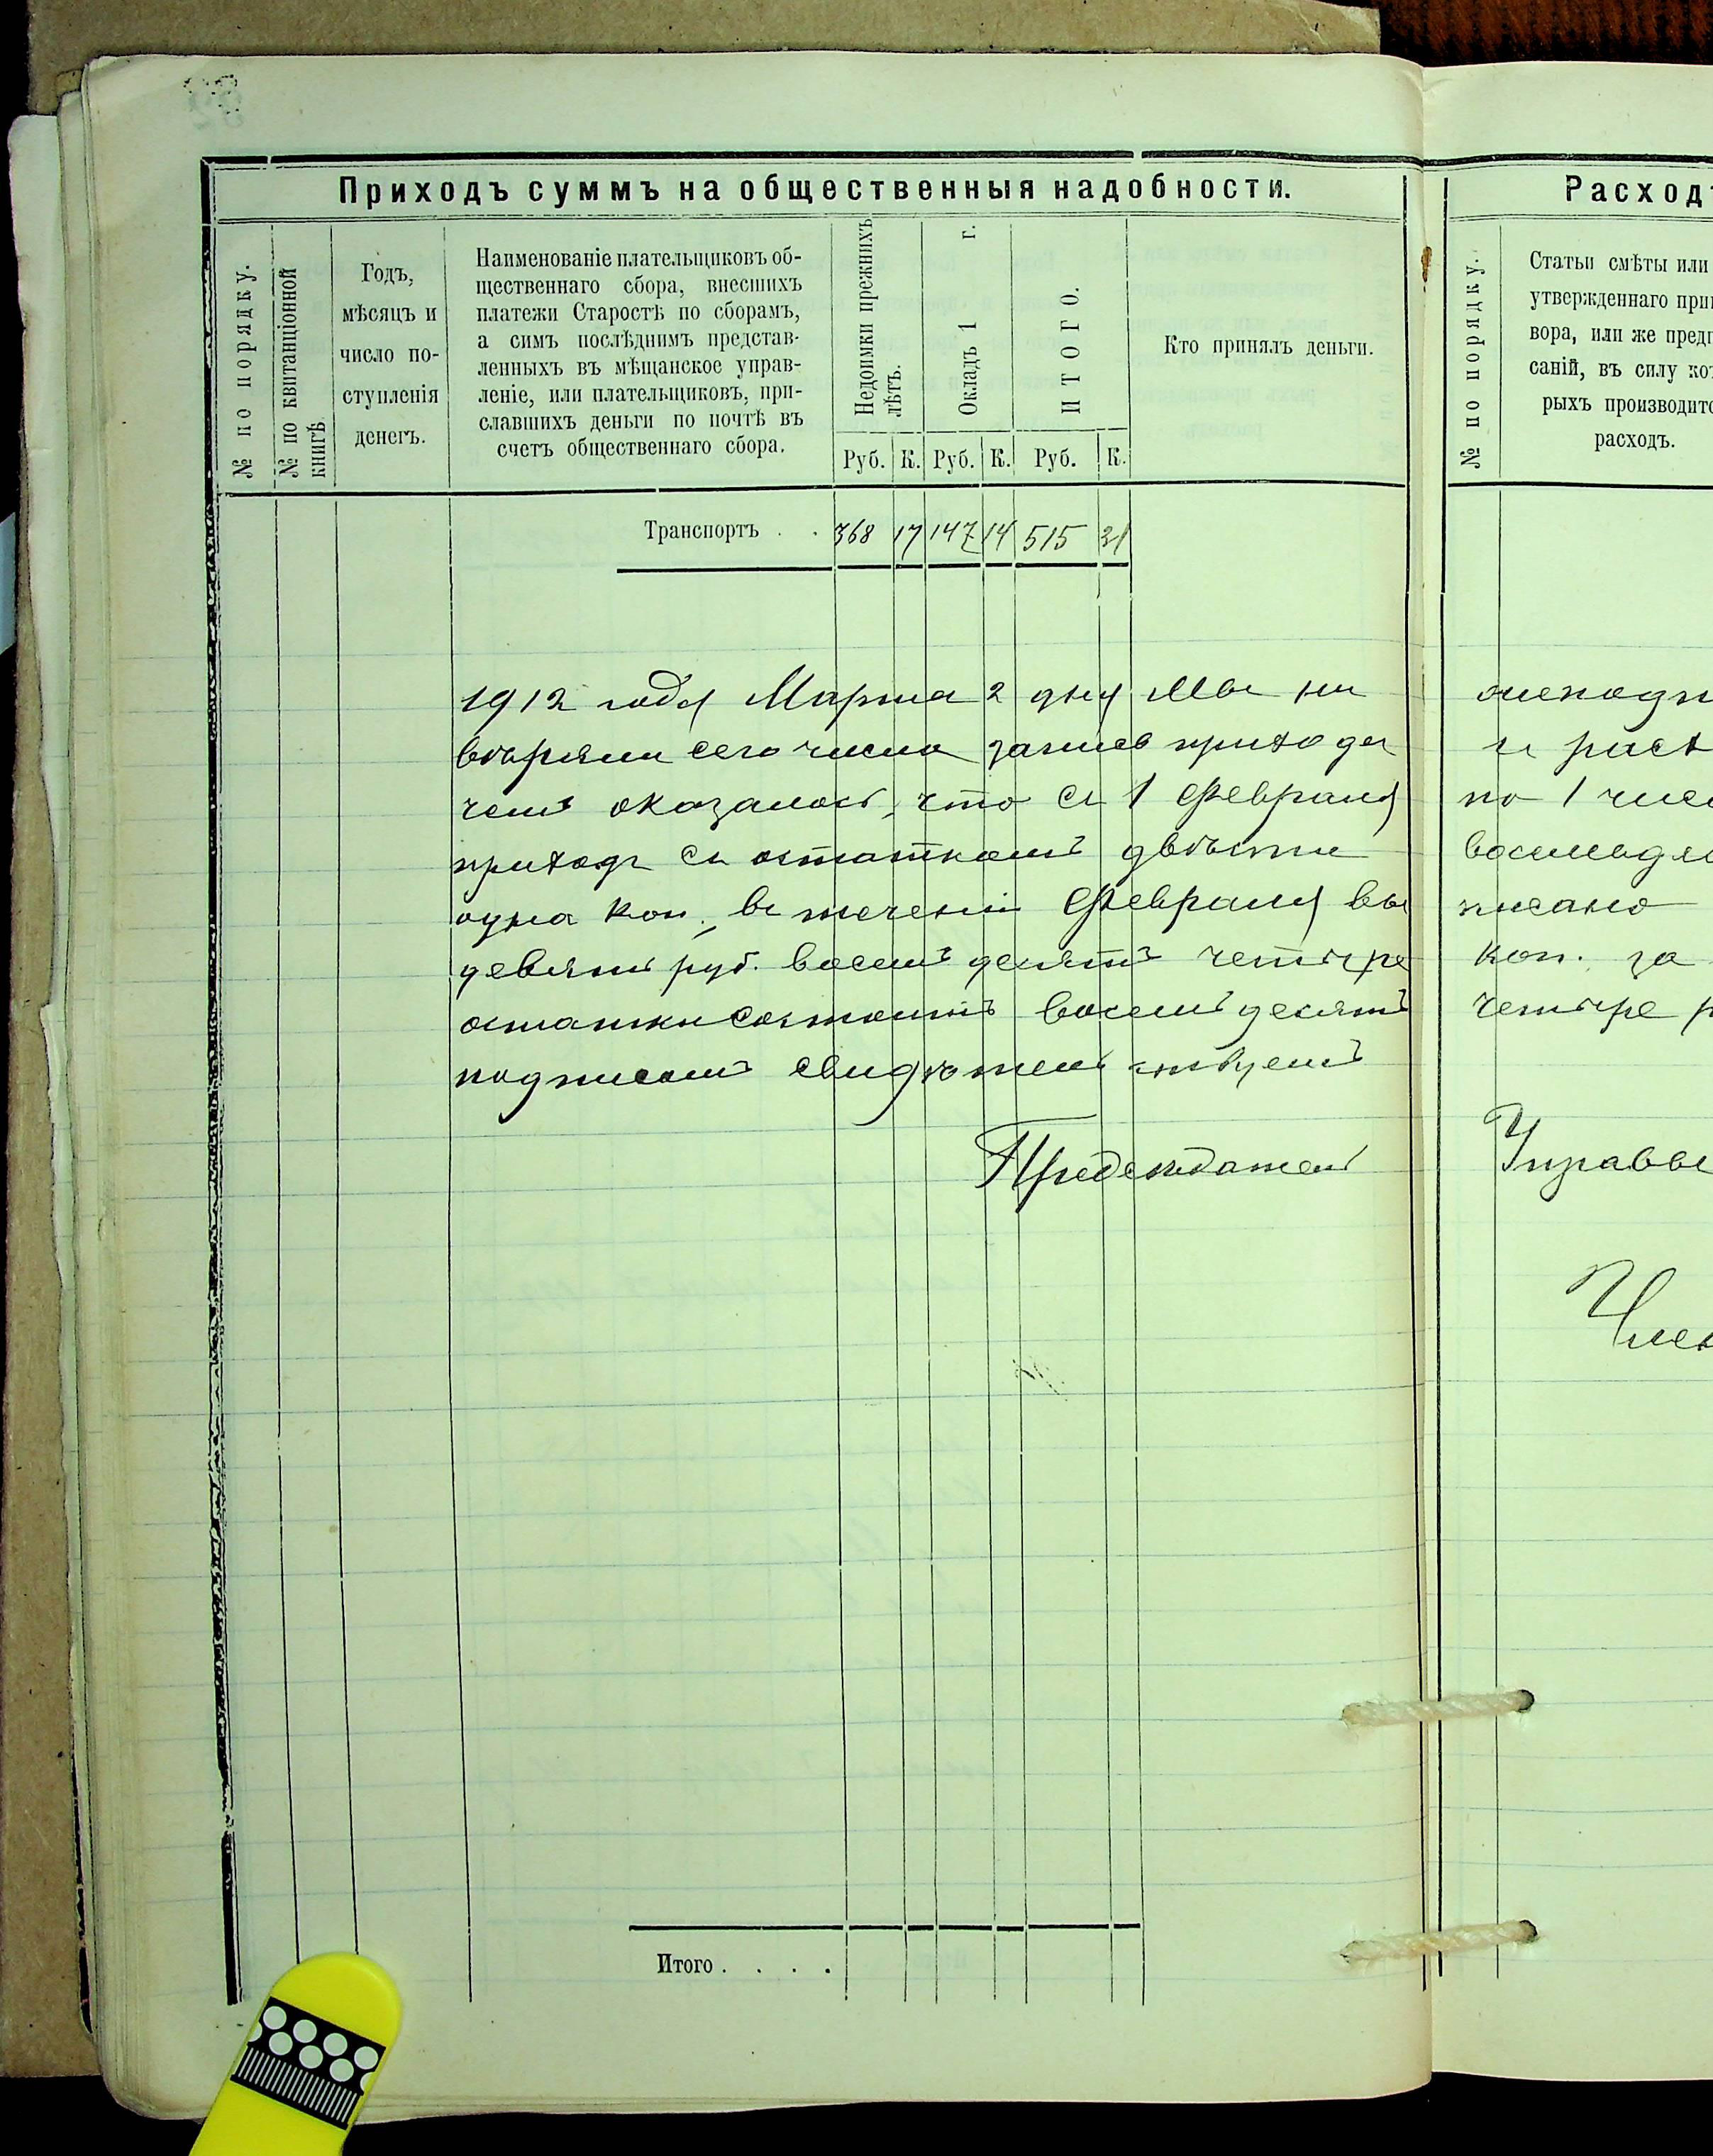 Приходъ суммъ на общественныя надобности.
№ по порядку.
№ по квитанціонной
книгѣ.
Годъ,
мѣсяцъ и
число по-
ступленія
денегъ.
Наименованіе плательщиковъ об-
щественнаго сбора, внесшихъ
платежи Старостѣ по сборамъ,
а симъ послѣднимъ представ-
ленныхъ въ мѣщанское управ-
леніе, или плательщиковъ, при-
славшихъ деньги по почтѣ въ
счетъ общественнаго сбора.
Недоимки прежнихъ
лѣтъ.
Окладъ 1 г.
ИТОГО.
Руб. К. Руб. К. Руб. К.
Кто принялъ деньги.
Транспортъ . . 368 17 147 14 515 31
1912 года Марта 2 дня Мы ни
сего числа запись прихода
чемъ оказалось, что съ 1 Февраля
приходъ съ остаткомъ двѣсти
одна коп., въ теченіи Февраля вы
девять руб. восемь десятъ четыре
остатки состоитъ восемь десятъ
подписомъ свидѣтельствуемъ
Председатель
Итого . . . .
Расходъ
№ по порядку.
Статьи смѣты или
утвержденнаго при
вора, или же пред
саній, въ силу ко
рыхъ производит
расходъ.
и расх
по 1 чис
восемьдес
писано
коп. за
четыре р
Управы
Член